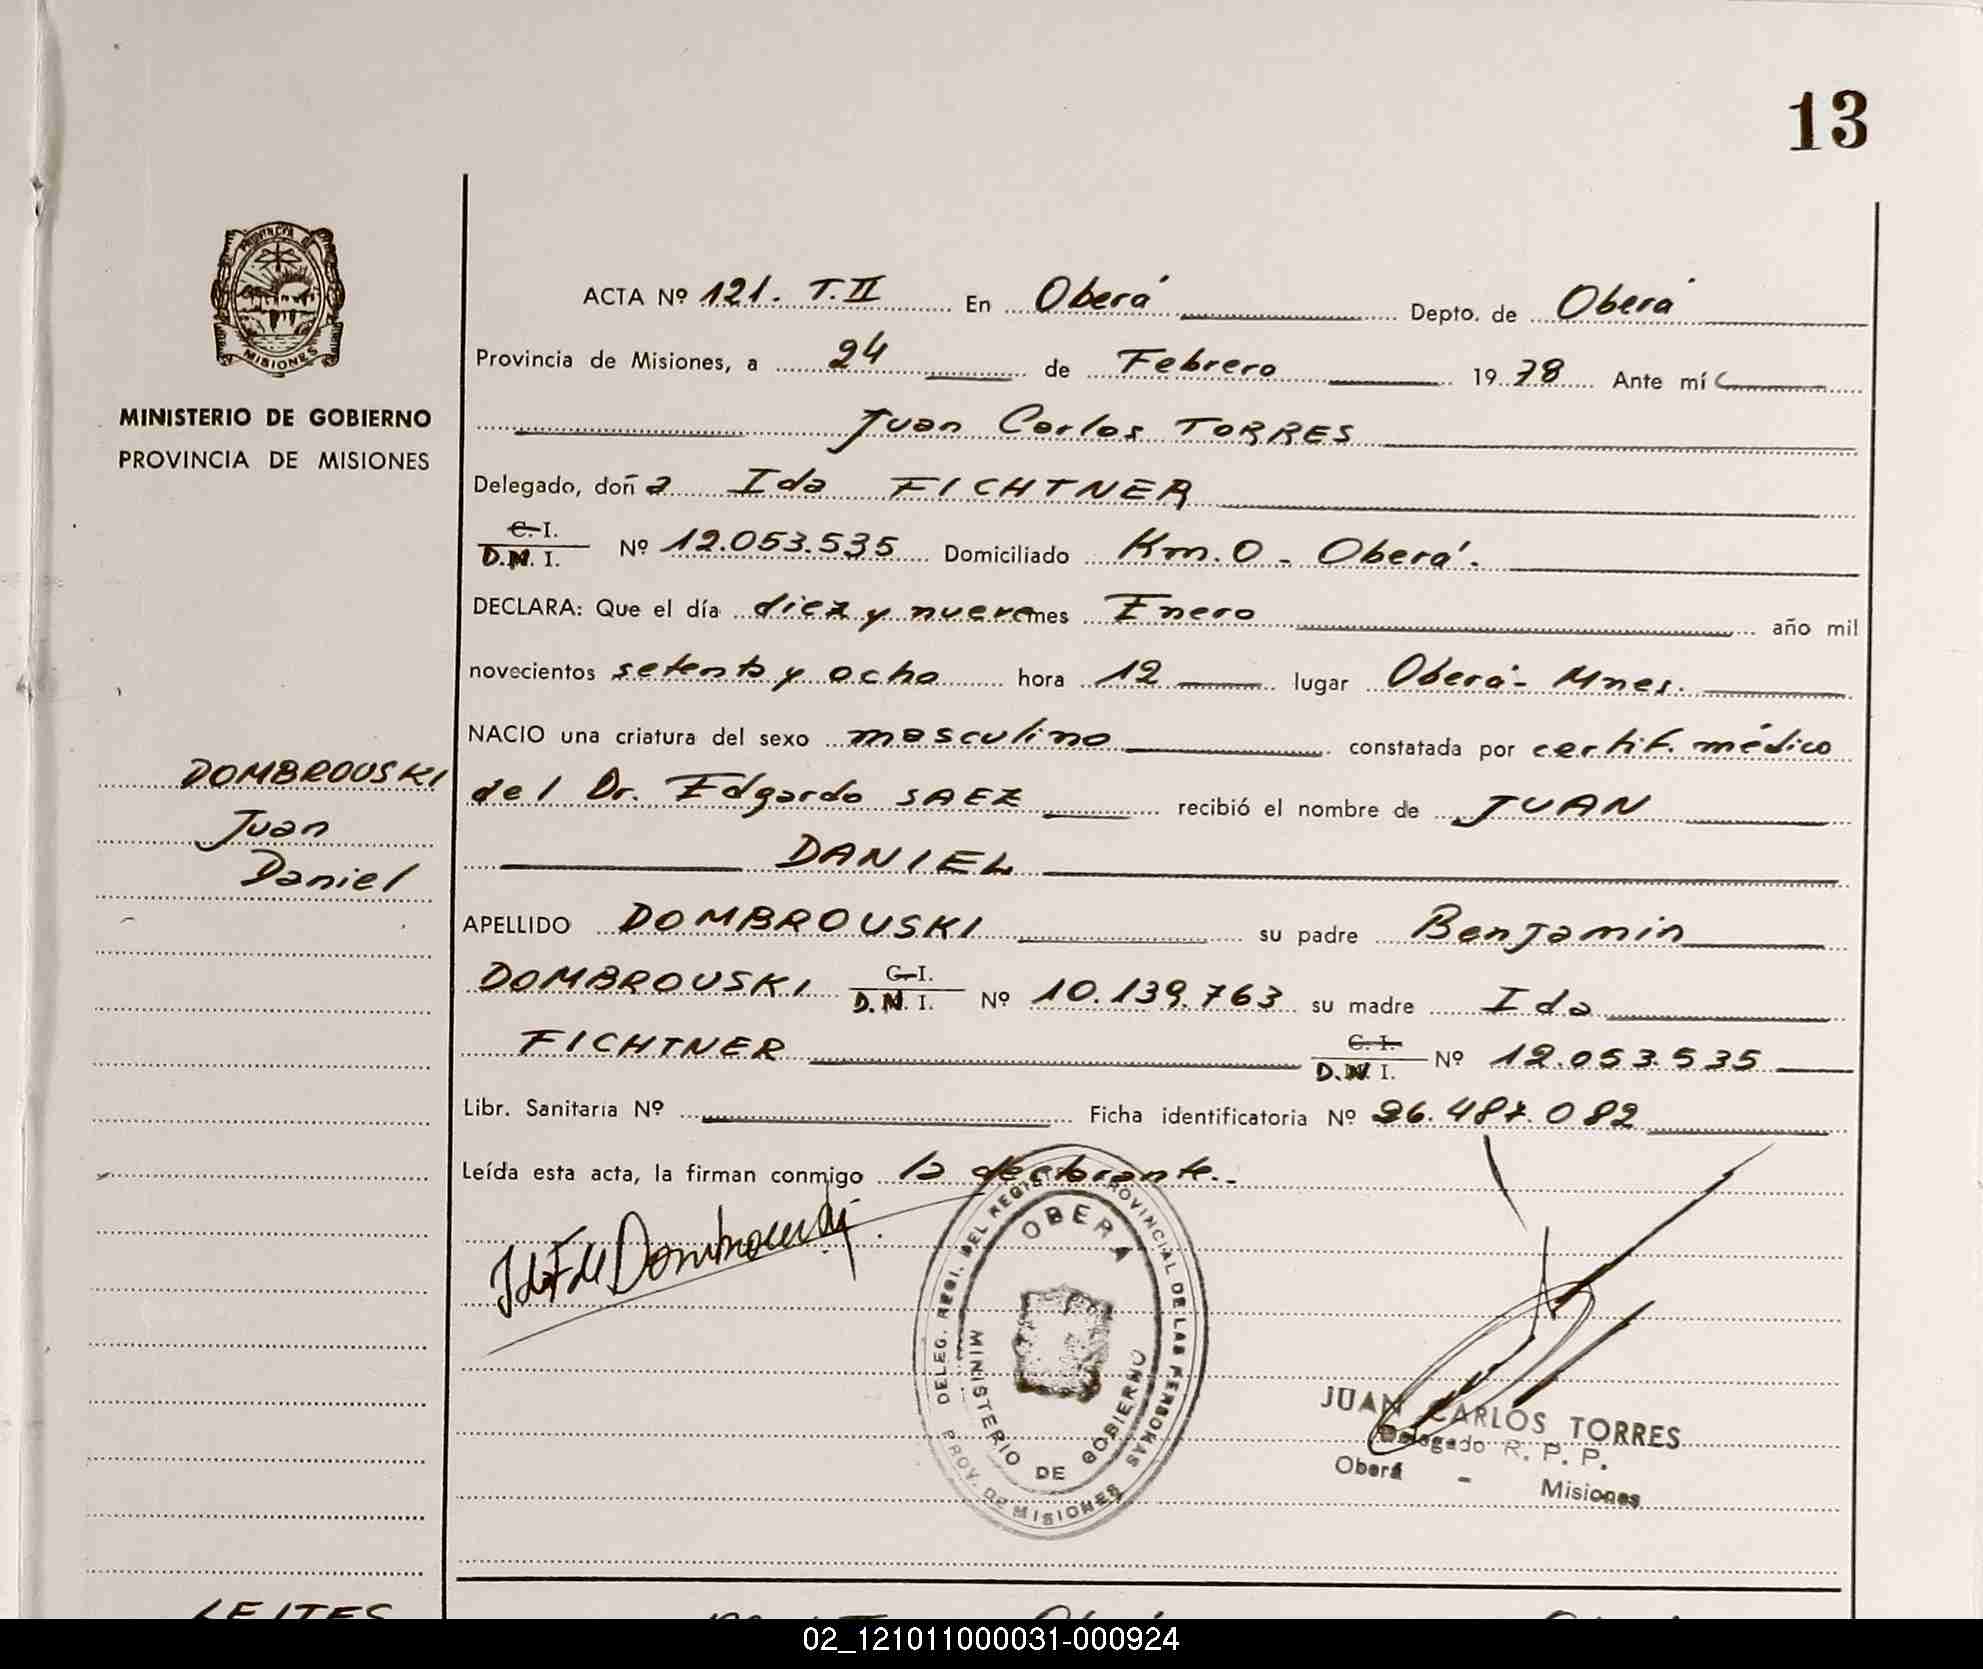 13
PROVINCIA DE
MISIONES
MINISTERIO DE GOBIERNO
PROVINCIA DE MISIONES
ACTA Nº 121. T.II En Oberá Depto. de Oberá
Provincia de Misiones, a 24 de Febrero 1978 Ante mí
Juan Carlos TORRES
Delegado, doña Ida FICHTNER
C. I.
D.N. I. Nº 12.053.535 Domiciliado Km. 0 - Oberá.
DECLARA: Que el día diez y nueve mes Enero año mil
novecientos setenta y ocho hora 12 lugar Oberá - Mnes.
NACIO una criatura del sexo masculino constatada por certif. médico
del Dr. Edgardo SAEZ recibió el nombre de JUAN
DANIEL
APELLIDO DOMBROUSKI su padre Benjamin
DOMBROUSKI C. I.
D.N. I. Nº 10.139.763 su madre Ida
FICHTNER C. I.
D.N. I. Nº 12.053.535
Libr. Sanitaria Nº Ficha identificatoria Nº 26.487.082
Leída esta acta, la firman conmigo la declarante.
DOMBROUSKI
Juan
Daniel
DELEG. REGI. DEL REGIST. PROVINCIAL DE LAS PERSONAS
PROV. DE MISIONES
OBERA
MINISTERIO DE GOBIERNO
JUAN CARLOS TORRES
Delegado R. P. P.
Oberá - Misiones
LEITES
02_121011000031-000924